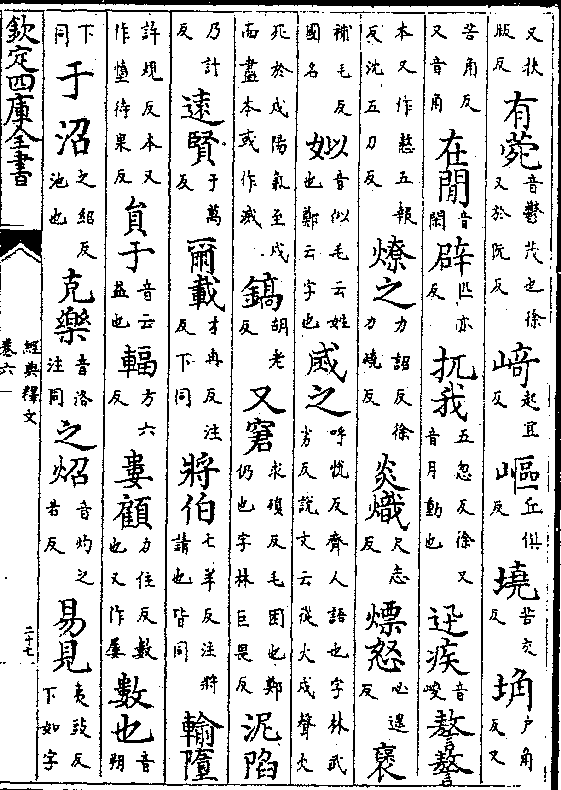 又扶版反有菀音鬱茂也徐又於阮反崎起宜反嶇丘俱反墝苦交反埆戶角反又
苦角反又音角在閒音閑辟匹亦反扤我五忽反徐又音月動也迅疾音峻嗸嗸
本又作嗸五報反沈五刀反燎之力詔反徐力燒反炎熾尺志反熛怒必遥反褒
補毛反國名姒音似毛云姓也鄭云字也烕之呼恱反齊人語也字林武劣反說文云從火戌聲火
死於戌陽氣至戌而盡本或作滅鎬胡老反又窘求殞反毛困也鄭仍也字林巨畏反泥陷
乃計反逺賢于萬反爾載才再反注下同將伯七羊反注將請也皆同輸墮
許規反本又作憻待果反負于音云益也輻方六反婁顧力住反數也又作屢數也音朔
下同于沼之紹反池也克樂音洛注同之炤音灼之若反易見夷豉反下如字
欽定四庫全書
經典釋文
卷六
二十七